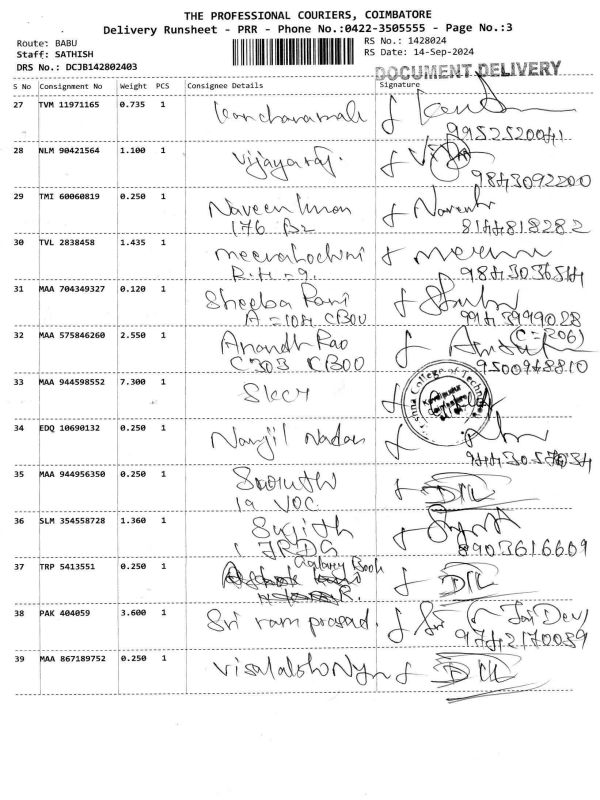 THE PROFESSIONAL COURIERS, COIMBATORE
Delivery Runsheet - PRR - Phone No.:0422-3505555 - Page No.:3
Route: BABU
Staff: SATHISH
DRS No.: DCJB142802403
RS No.: 1428024
RS Date: 14-Sep-2024
DOCUMENT DELIVERY
S No Consignment No Weight PCS Consignee Details Signature
27 TVM 11971165 0.735 1
9952520041
28 NLM 90421564 1.100 1 Vijayaraj.
9843092200
29 TMI 60060819 0.250 1 Naveen
176 B2 8144818282
30 TVL 2838458 1.435 1
31 MAA 704349327 0.120 1 Sheeba Rani
A-104 CBOO
32 MAA 575846260 2.550 1 Anandh Rao (C-206)
C303 CBOO 9500948810
33 MAA 944598552 7.300 1 SKCT
College of Techn
34 EDQ 10690132 0.250 1 Nanjil Nadan
35 MAA 944956350 0.250 1
19 VOC
36 SLM 354558728 1.360 1 Sujith
8903616609
37 TRP 5413551 0.250 1
38 PAK 404059 3.600 1 Sri ram prasad.
9742170059
39 MAA 867189752 0.250 1